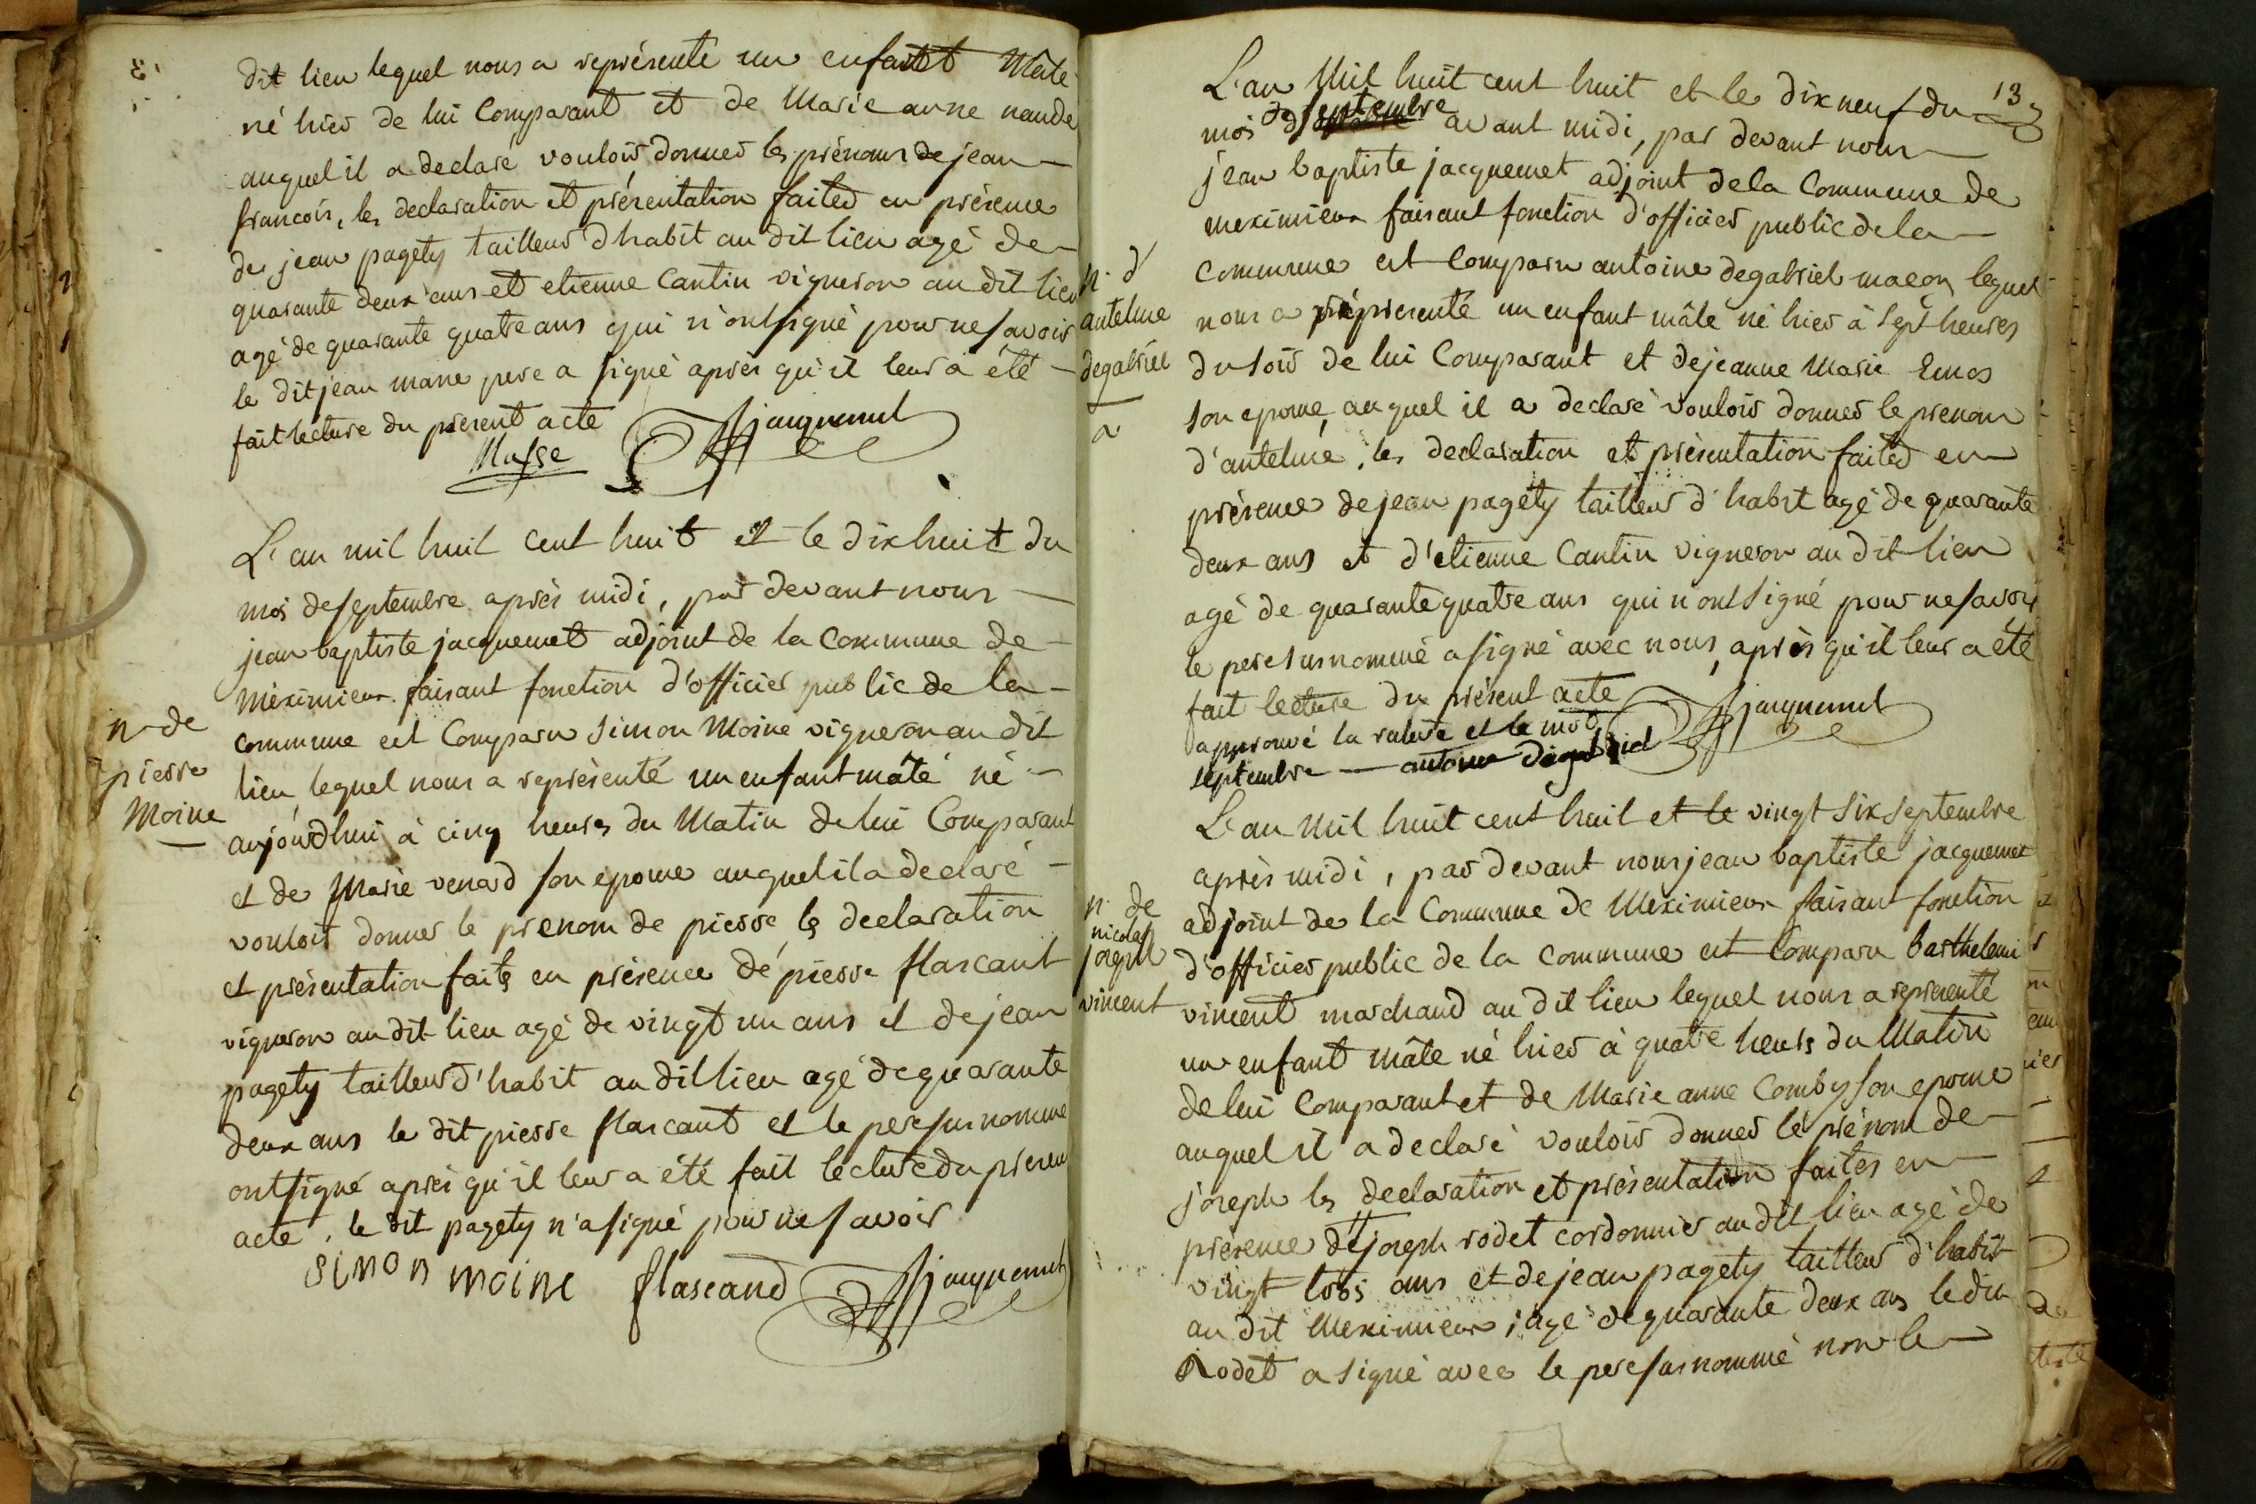 dit lieu lequel nous a représenté un enfant Mâle
né hier de lui Comparant et de Marie anne naude
auquel il a declaré vouloir donner les prénoms de jean
francois, les declaration et présentation faites en présence
de jean pagety tailleur d'habit au dit lieu agé de
quarante deux ans et etienne Cantin vigneron au dit lieu
agé de quarante quatre ans qui n'ont signé pour ne savoir
le dit jean pere a signé après qu'il leur a été
fait lecture du present acte
Masse jacquemet
L'an mil huit cent huit et le dix huit du
mois de septembre après midi, par devant nous
jean baptiste jacquemet adjoint de la Commune de
Meximieux faisant fonction d'officier public de la
commune est Comparu Simon Moine vigneron au dit
lieu, lequel nous a représenté un enfant mâle né
aujourd'hui à cinq heures du Matin de lui Comparant
et de Marie venard son epouse auquel il a declaré
vouloir donner le prenom de pierre les declaration
et présentation faites en présence de pierre flascant
vigneron au dit lieu agé de vingt un ans et de jean
pagety tailleur d'habit au dit lieu agé de quarante
deux ans le dit pierre flascant et le pere susnommé
ont signé après qu'il leur a été fait lecture du present
acte, le dit pagety n'a signé pour ne savoir
simon moine flascand jacquemet
n. de
pierre
Moine
13
L'an Mil huit cent huit et le dix neuf du
mois de septembre avant midi, par devant nous
jean baptiste jacquemet adjoint de la Commune de
meximieux faisant fonction d'officier public de la
commune est Comparu antoine degabriel macon, lequel
nous a représenté un enfant mâle né hier à sept heures
du soir de lui Comparant et de jeanne Marie
son epouse, auquel il a declaré vouloir donner le prenom
d'antelme, les declaration et présentation faites en
présence de jean pagety tailleur d'habit agé de quarante
deux ans et d'etienne Cantin vigneron au dit lieu
agé de quarante quatre ans qui n'ont signé pour ne savoir
le pere susnommé a signé avec nous, après qu'il leur a été
fait lecture du présent acte
approuvé la rature et le mot jacquemet
septembre — antoine degabriel
n. d'
antelme
degabriel
L'an Mil huit cent huit et le vingt six septembre
après midi, par devant nous jean baptiste jacquemet
adjoint de la Commune de Meximieux faisant fonction
d'officier public de la commune est Comparu barthelemi
vincent marchand au dit lieu lequel nous a représenté
un enfant mâle né hier à quatre heures du Matin
de lui Comparant et de Marie anne Comby son epouse
auquel il a declaré vouloir donner le prénom de
joseph les declaration et présentation faites en
présence de joseph rodet cordonnier au dit lieu agé de
vingt trois ans et de jean pagety tailleur d'habit
au dit Meximieux, agé de quarante deux ans le dit
Rodet a signé avec le pere susnommé non le
n. de
nicolas
joseph
vincent